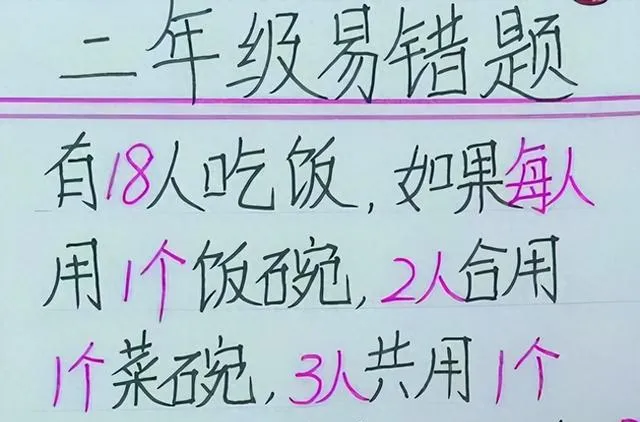 二年级易错题
有18人吃饭,如果每人
用1个饭碗,2人合用
1个菜碗,3人共用1个